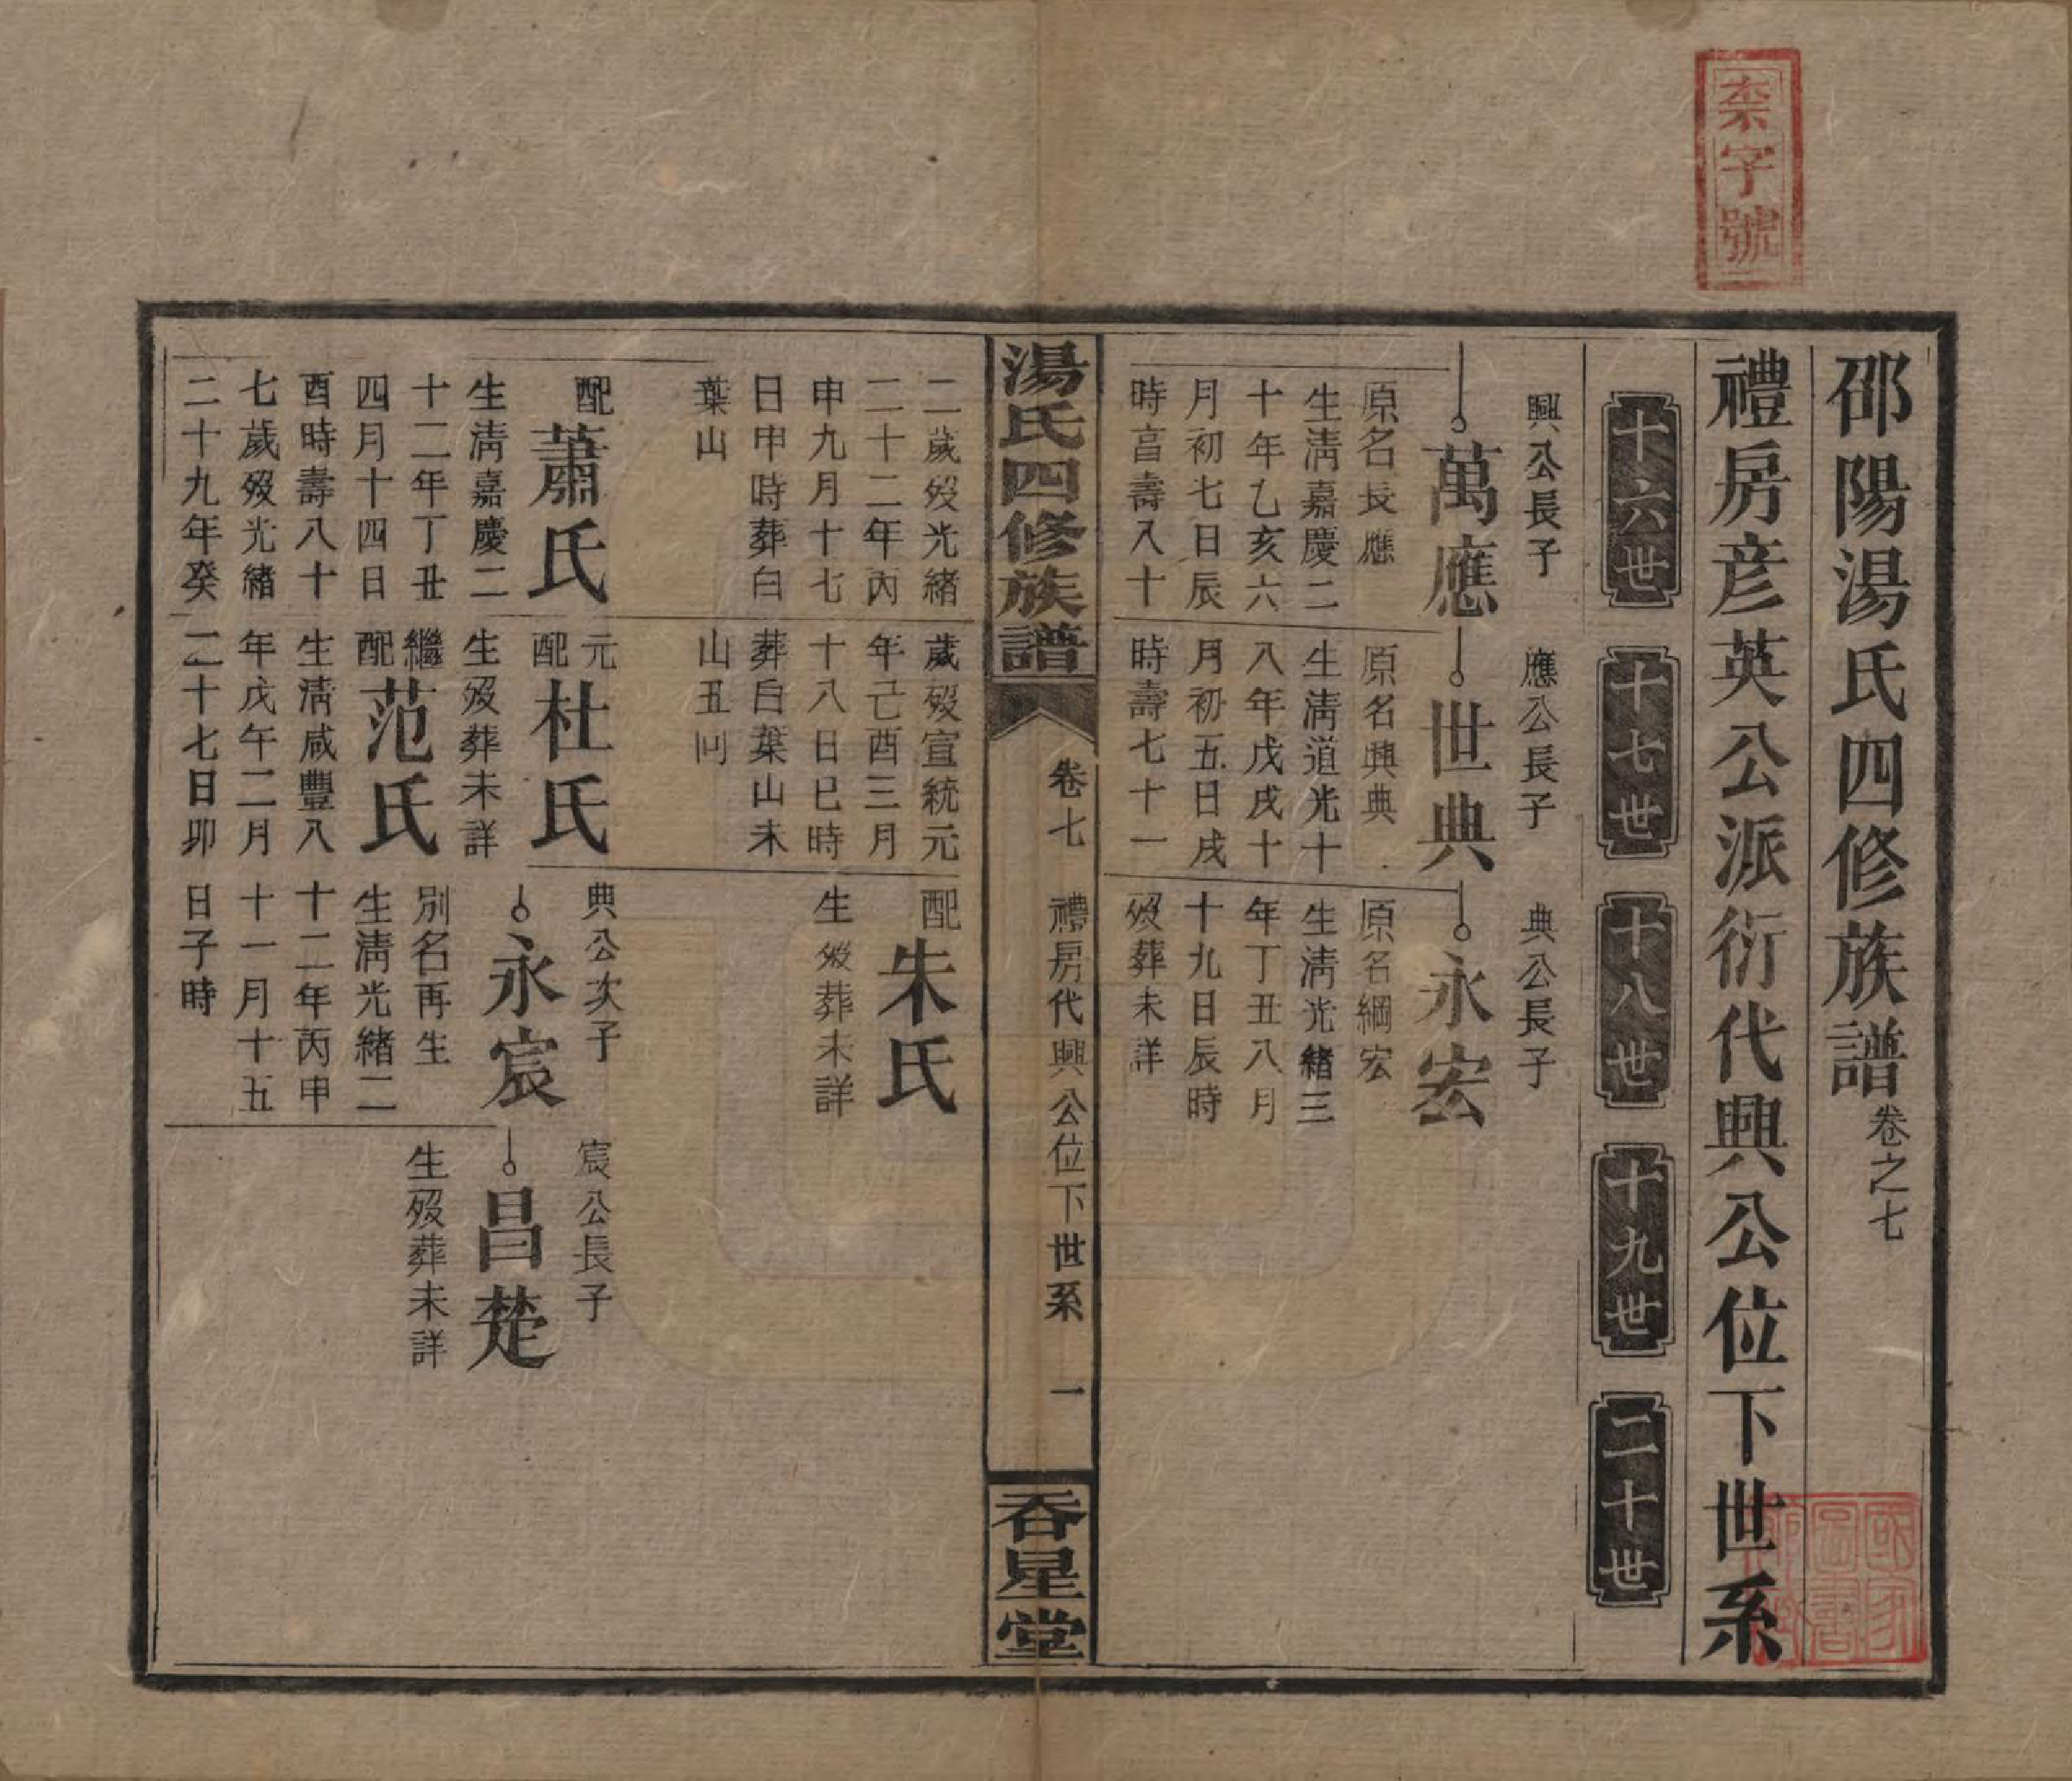 柰字號
邵陽湯氏四修族譜卷之七
禮房彦英公派衍代興公位下世系
十六世
十七世
十八世
十九世
二十世
興公長子
萬應
原名長應
生淸嘉慶二
十年乙亥六
月初七日辰
時富壽八十
二歲歿光緒
二十二年丙
申九月十七
日申時葬白
葉山
配
蕭氏
生淸嘉慶二
十二年丁丑
四月十四日
酉時壽八十
七歲歿光緒
二十九年癸
應公長子
世典
原名興典
生淸道光十
八年戊戌十
月初五日戌
時壽七十一
歲歿宣統元
年己酉三月
十八日巳時
葬白葉山未
山丑向
元配
杜氏
生歿葬未詳
繼配
范氏
生淸咸豐八
年戊午二月
二十七日卯
典公長子
永宏
原名綱宏
生淸光緒三
年丁丑八月
十九日辰時
歿葬未詳
配
朱氏
生歿葬未詳
典公次子
永宸
別名再生
生淸光緒二
十二年丙申
十一月十五
日子時
宸公長子
昌楚
生歿葬未詳
湯氏四修族譜
卷七
禮房代興公位下世系
一
吞星堂